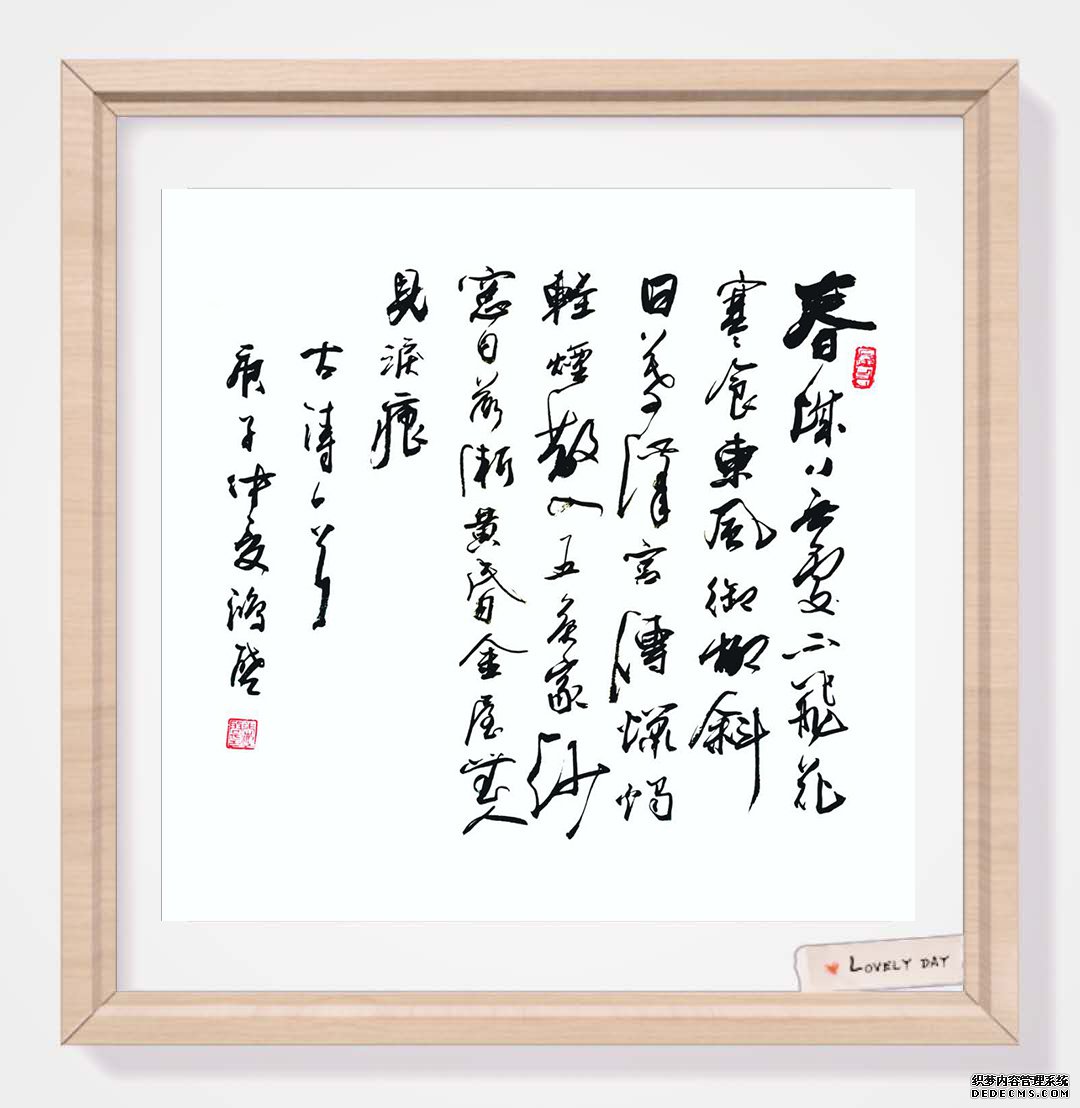 春城無處不飛花
寒食東風御柳斜
日暮漢宮傳蠟燭
輕煙散入五侯家紗
窓日落漸黃昏金屋無人
見淚痕
古詩二首
庚子仲夏鴻
LOVELY DAY
织梦内容管理系统
DEDECMS.COM